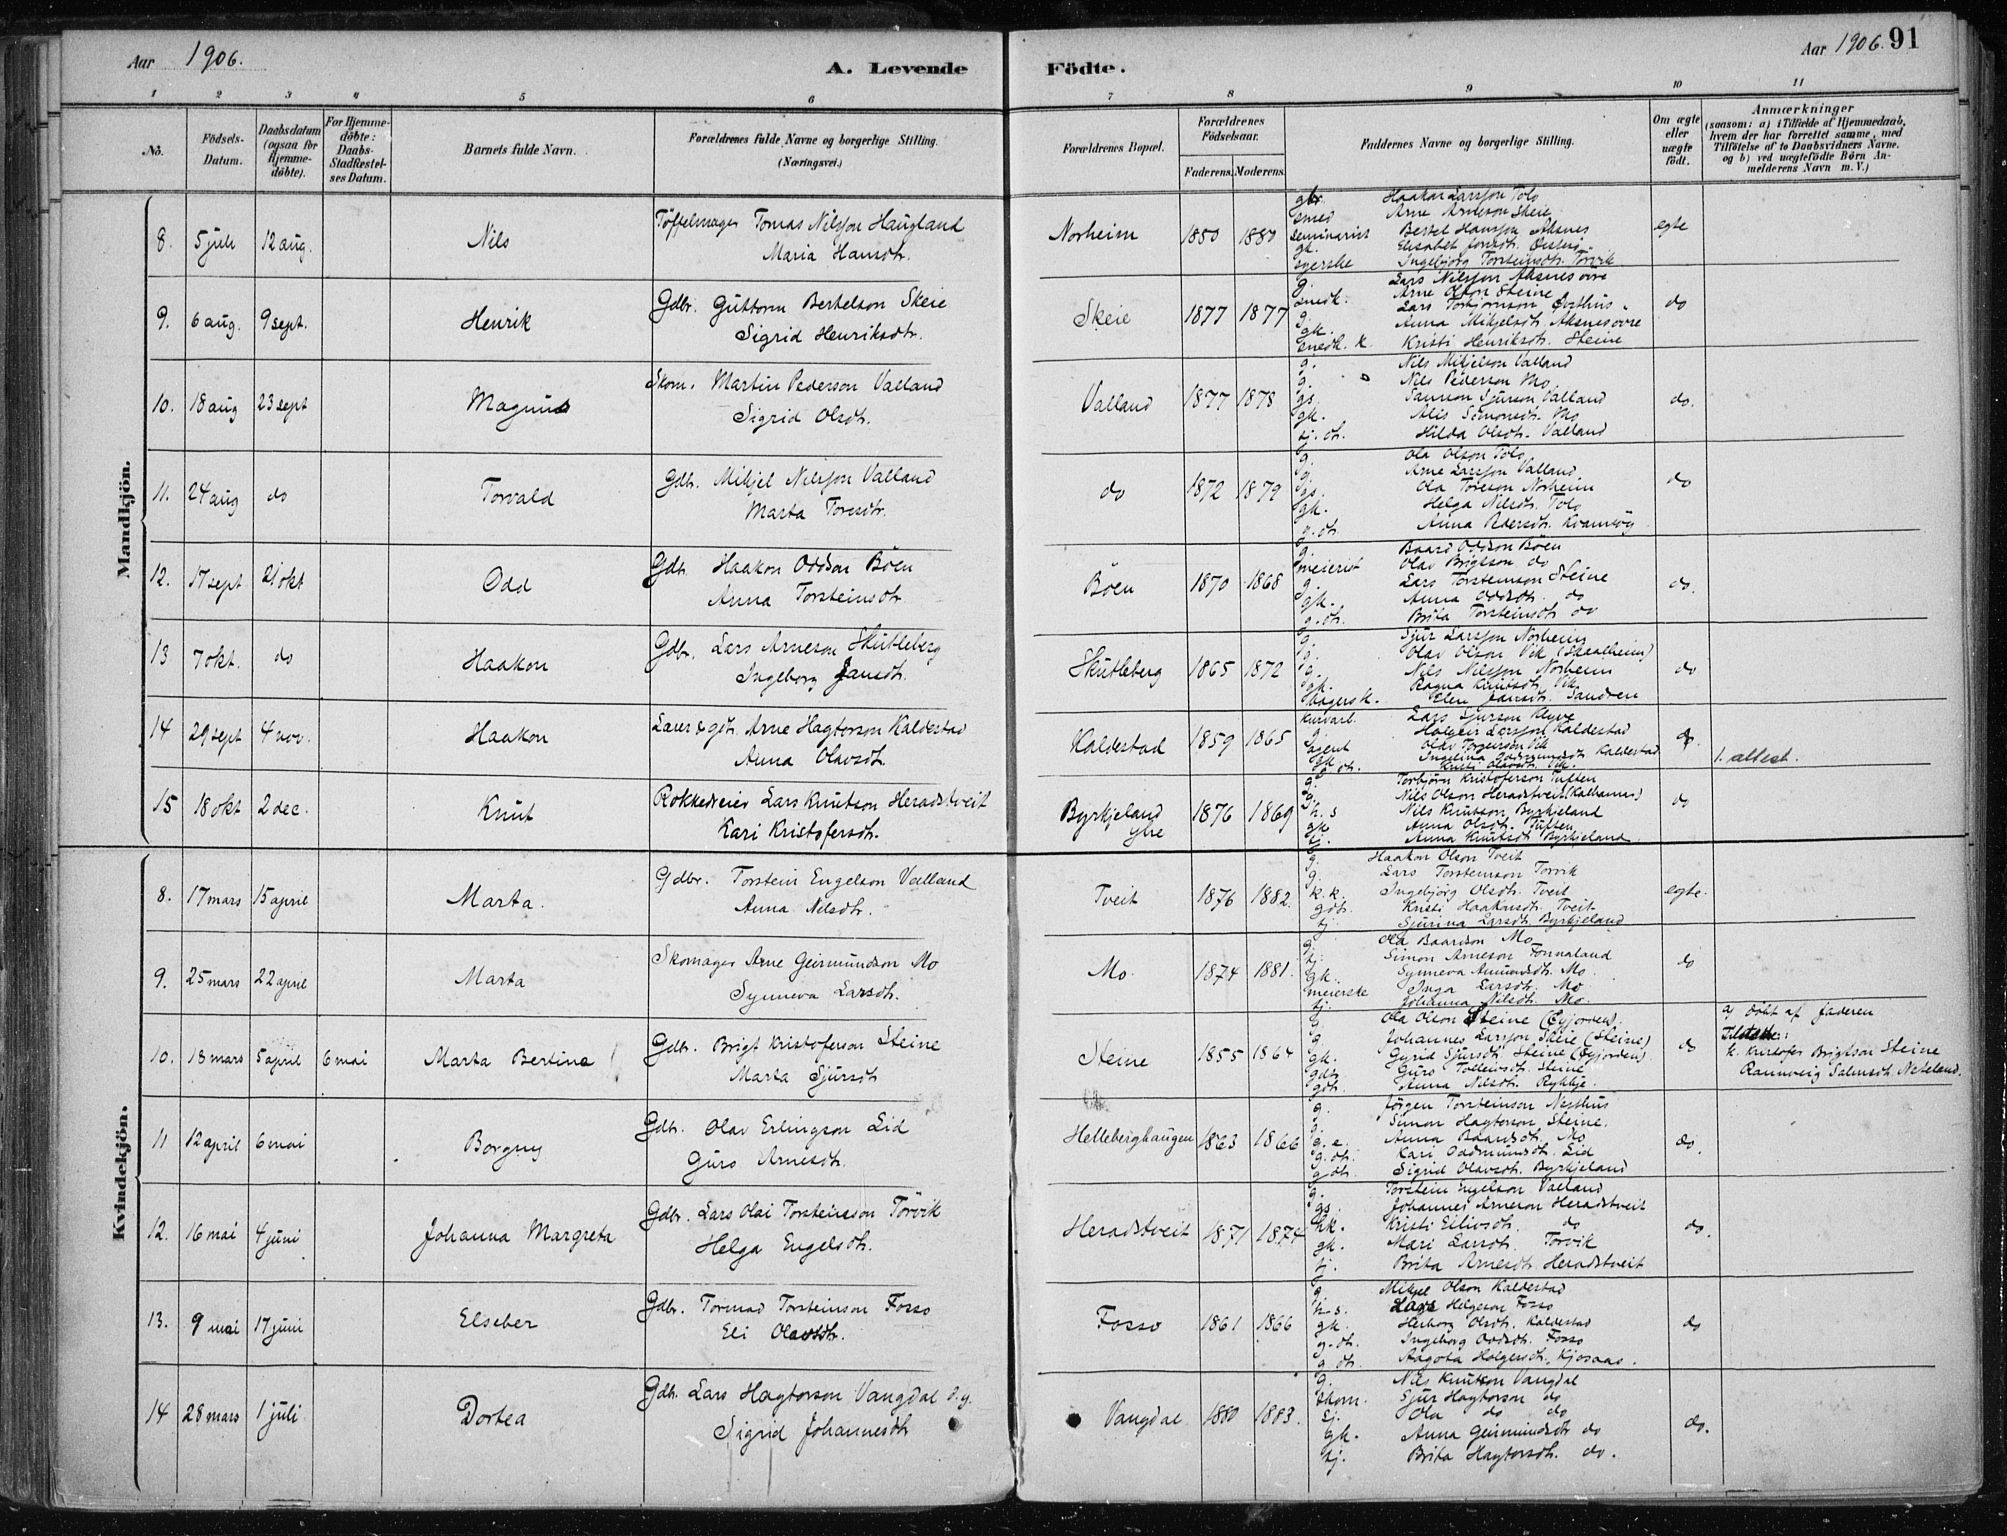 Aar 1906.
A. Levende Födte.
Aar 1906. 91
1 2 3 4 5 6 7 8 9 10 11
No.
Födsels-Datum.
Daabsdatum (ogsaa for hjemme-døbte).
For Hjemme-döbte: Daabs-Stadfestel-ses Datum.
Barnets fulde Navn.
Forældrenes fulde Navne og borgerlige Stilling. (Næringsvei.)
Forældrenes Bopæl.
Forældrenes Födselsaar.
Faderens. Moderens.
Faddernes Navne og borgerlige Stilling.
Om ægte eller uægte födt.
Anmærkninger
(saasom: a) i Tilfælde af Hjemmedaab, hvem der har forrettet samme, med Tilföielse af to Daabsvidners Navne. og b) ved uægtefödte Börn An-melderens Navn m. V.)
Mandkjön.
8. 5 juli 12 aug. Nils Töffelmager Tomas Nilsson Haugland
Maria Hansdtr. Norheim 1850 1880 egte
gbr. Haakon Larsson Tolo
smed Arne Arneson Skeie
seminarist Bertel Hansson Aksnes
gk. Elisabet Jonsdtr.
syerske Ingebjörg Torsteinsdtr. Törvik
9. 6 aug. 9 sept. Henrik Gdbr. Guttorm Bertelson Skeie
Sigrid Henriksdtr. Skeie 1877 1877 do
g. Lars Nilsson Aksnes övre
snedk. Arne Olson Steine
g. Lars Torbjörnson
gk. Anna Mikjelsdtr. Aksnes övre
snedk. k. Kristi Henriksdtr. Steine
10. 18 aug 23 sept Magnus Skom. Martin Pederson Valland
Sigrid Olsdtr. Valland 1877 1878 do.
g. Nils Mikjelson Valland
g. Nils Pederson Mo
gs. Samson Sjurson Valland
gk. Alis Simonsdtr. Mo
tj. dtr. Hilda Olsdtr. Valland
11. 24 aug do Torvald Gdbr. Mikjel Nilsson Valland
Marta Toresdtr. do 1872 1879 do
g. Ola Olson Tolo
g. Arne Larsson Valland
gs. Ola Toreson Norheim
gk. Helga Nilsdtr. Tolo
g. dtr. Anna Pedersdtr. Kvamsöy
12. 17 sept 21 okt Odd Gdbr. Haakon Oddson Böen
Anna Torsteinsdtr. Böen 1870 1868 do.
g. Baard Oddson Böen
meierist Olav Brigtson do
g. Lars Torsteinson Steine
gk. Anna Oddsdtr. do
g. dtr. Brita Torsteinsdtr. do
13 7 okt. do Haakon Gdbr. Lars Arneson Skutleberg
Ingeborg Jansdtr. Skutleberg 1865 1872 do
g. Sjur Larsson Norheim
g. Olav Olson Vik (Skaalheim)
g. Nils Nilsson Norheim
gk. Ragna Knutsdtr. Vik
bagersk. Elen Jansdtr. Sandven
14 29 sept 4 nov. Haakon Lærer & gdbr. Arne Hagtorson Kaldestad
Anna Olavsdtr. Kaldestad 1859 1865 do. 1. attest.
kurvarb. Lars Sjurson Kleve
g. Holgeir Larsson Kaldestad
agent Olav Torgeirson Vik
gk. Ingelina Oddmundsdtr. Kaldestad
g. dtr. Kristi Olavsdtr. Vik.
15 18 okt 2 dec. Knut Rokkedreier Lars Knutson Heradstveit
Kari Kristofersdtr. Byrkjeland ytre 1876 1869 do
g. Torbjörn Kristoferson Tuften
g. Nils Olson Heradstveit (Kalhamar)
h. s Nils Knutson Byrkjeland
gk Anna Olsdtr. Tuften
tj. Anna Knutsdtr Byrkjeland
Kvindekjön.
8. 17 mars 15 april Marta. Gdbr. Torstein Engelson Valland
Anna Nilsdtr. Tveit 1876 1882. egte.
g. Haakon Olson Tveit
g. Lars Torsteinson Torvik
k. k. Ingebjörg Olsdtr. Tveit
gdtr. Kristi Haakonsdtr. Tveit
tj. Sjurina Larsdtr. Byrkjeland
9. 25 mars 22 april Marta Skomager Arne Geirmundson Mo
Synneva Larsdtr. Mo 1874 1881. do
g. Ola Baardson Mo
tj. Simon Arneson Fonnaland
gk. Synneva Amundsdtr. Mo
meierske Inga Larsdtr. Mo
tj. Johanna Nilsdtr. Mo.
10. 13 mars 5 april 6 mai Marta Bertine Gdbr. Brigt Kristoferson Steine
Marta Sjursdtr Steine 1855 1864 do
g. Ola Olson Steine (Öyjorden).
g. Johannes Larsson Skeie (Steine)
gk. Gyrid Sjursdtr. Steine (Öyjorden)
gdtr. Guro Tolleivsdtr. Steine
gdtr. Anna Nilsdtr. Rykkje.
a) Döbt af faderen
Tilstede:
k. Kristofer Brigtson Steine
Rannveig Salmsdtr. Neteland.
11 12 april 6 mai Borgny Gdbr. Olav Erlingson Lid
Guro Arnesdtr. Helleberghaugen 1863 1866 do.
g. Jörgen Torsteinson Nesthus
g. Simon Hagtorson Steine.
g. e. Anna Baardsdtr. Mo
g. dtr. Kari Oddmundsdtr. Lid
g dtr. Sigrid Olavsdtr. Byrkjeland
12. 16 mai 4 juni Johanna Margreta Gdbr. Lars Olai Torsteinsson Törvik
Helga Engelsdtr. Heradstveit 1871 1874 do.
g. Torstein Engelson Valland
gs. Johannes Arneson Heradstveit
hk. Kristi Eilivsdtr. do
gk. Mari Larsdtr. Torvik
tj. Brita Arnesdtr Heradstveit
13. 9 mai 17 juni Elseber Gdbr. Tormod Torsteinson Fosso
Eli Olavsdtr. Fosso 1861 1866 do
g. Mikjel Olson Kaldestad
h. s. Lars Helgeson Fosso
gk. Herborg Olsdtr. Kaldestad
g. dtr. Ingeborg Oddsdtr. Fosso
g dtr. Aagota Holgersdtr. Kjosaas.
14 28 mars 1 juli Dortea Gdbr. Lars Hagtorson Vangdal d.y.
Sigrid Johannesdtr Vangdal 1880 1883. do.
g. Nils Knutson Vangdal
skom. Sjur Hagtorson do
tj. Ola do do
gk. Anna Geirmundsdtr do
tj. Brita Hagtorsdtr. do.